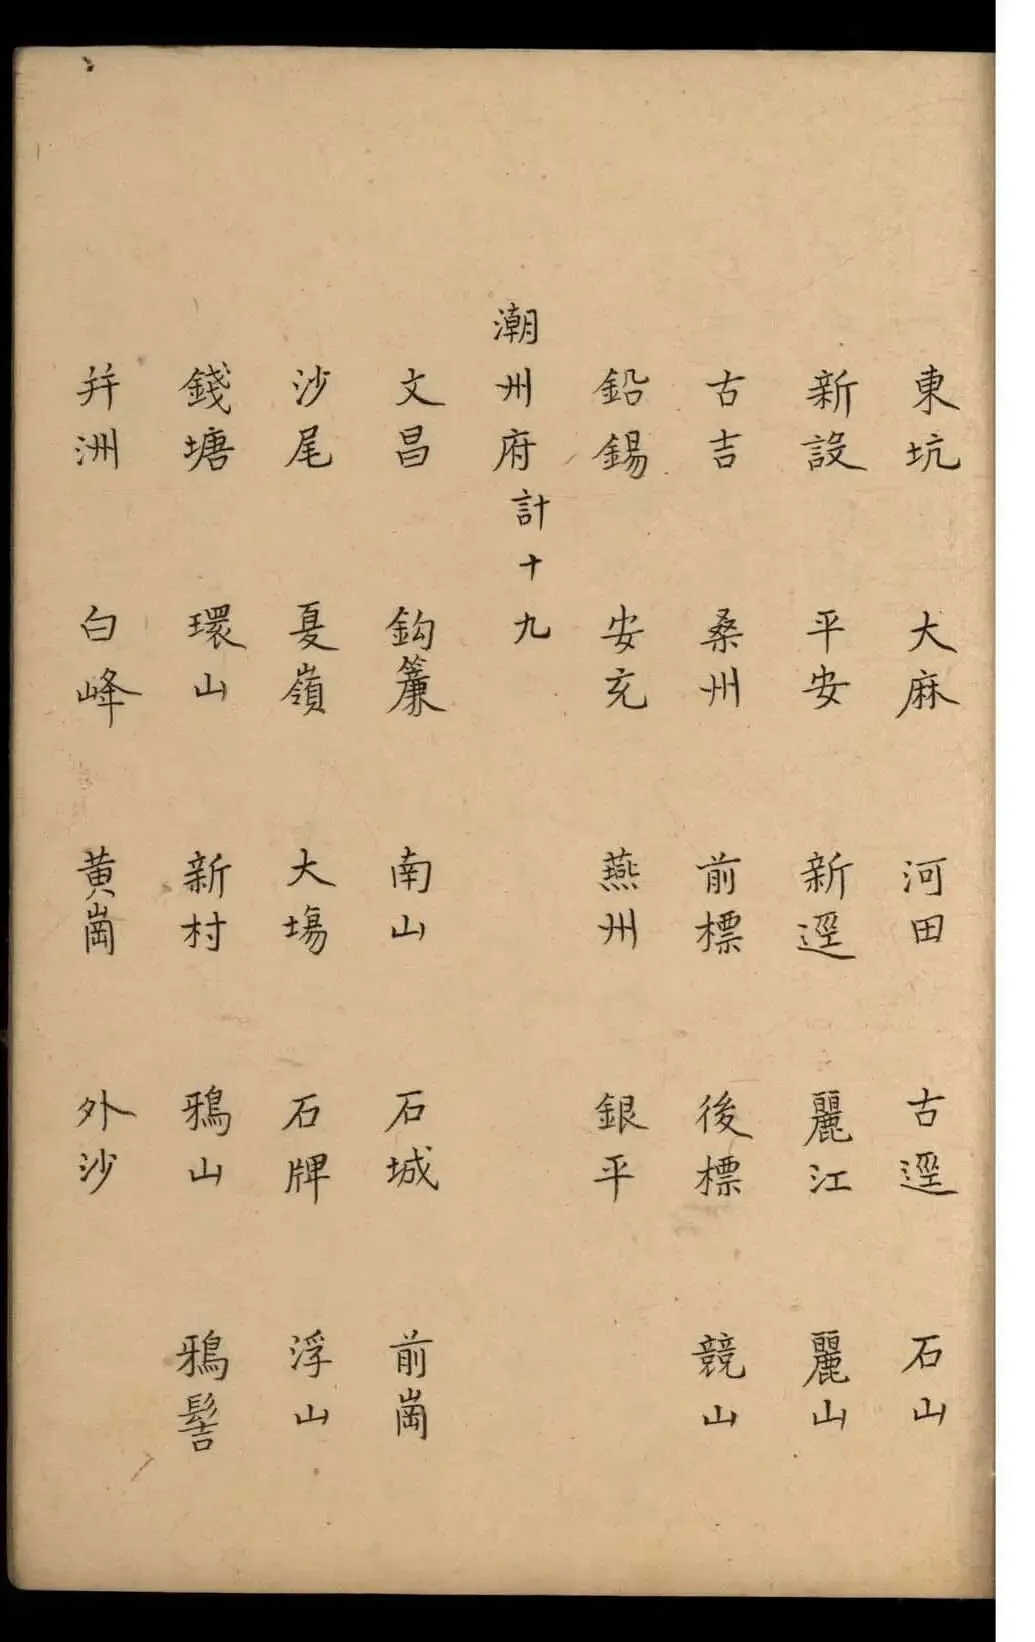 東坑 大麻 河田 古逕 石山
新設 平安 新逕 麗江 麗山
古吉 桑州 前標 後標 競山
鉛錫 安充 燕州 銀平
潮州府計十九
文昌 鈎簾 南山 石城 前崗
沙尾 夏嶺 大塲 石牌 浮山
錢塘 環山 新村 鴉山 鴉髻
井洲 白峰 黄崗 外沙